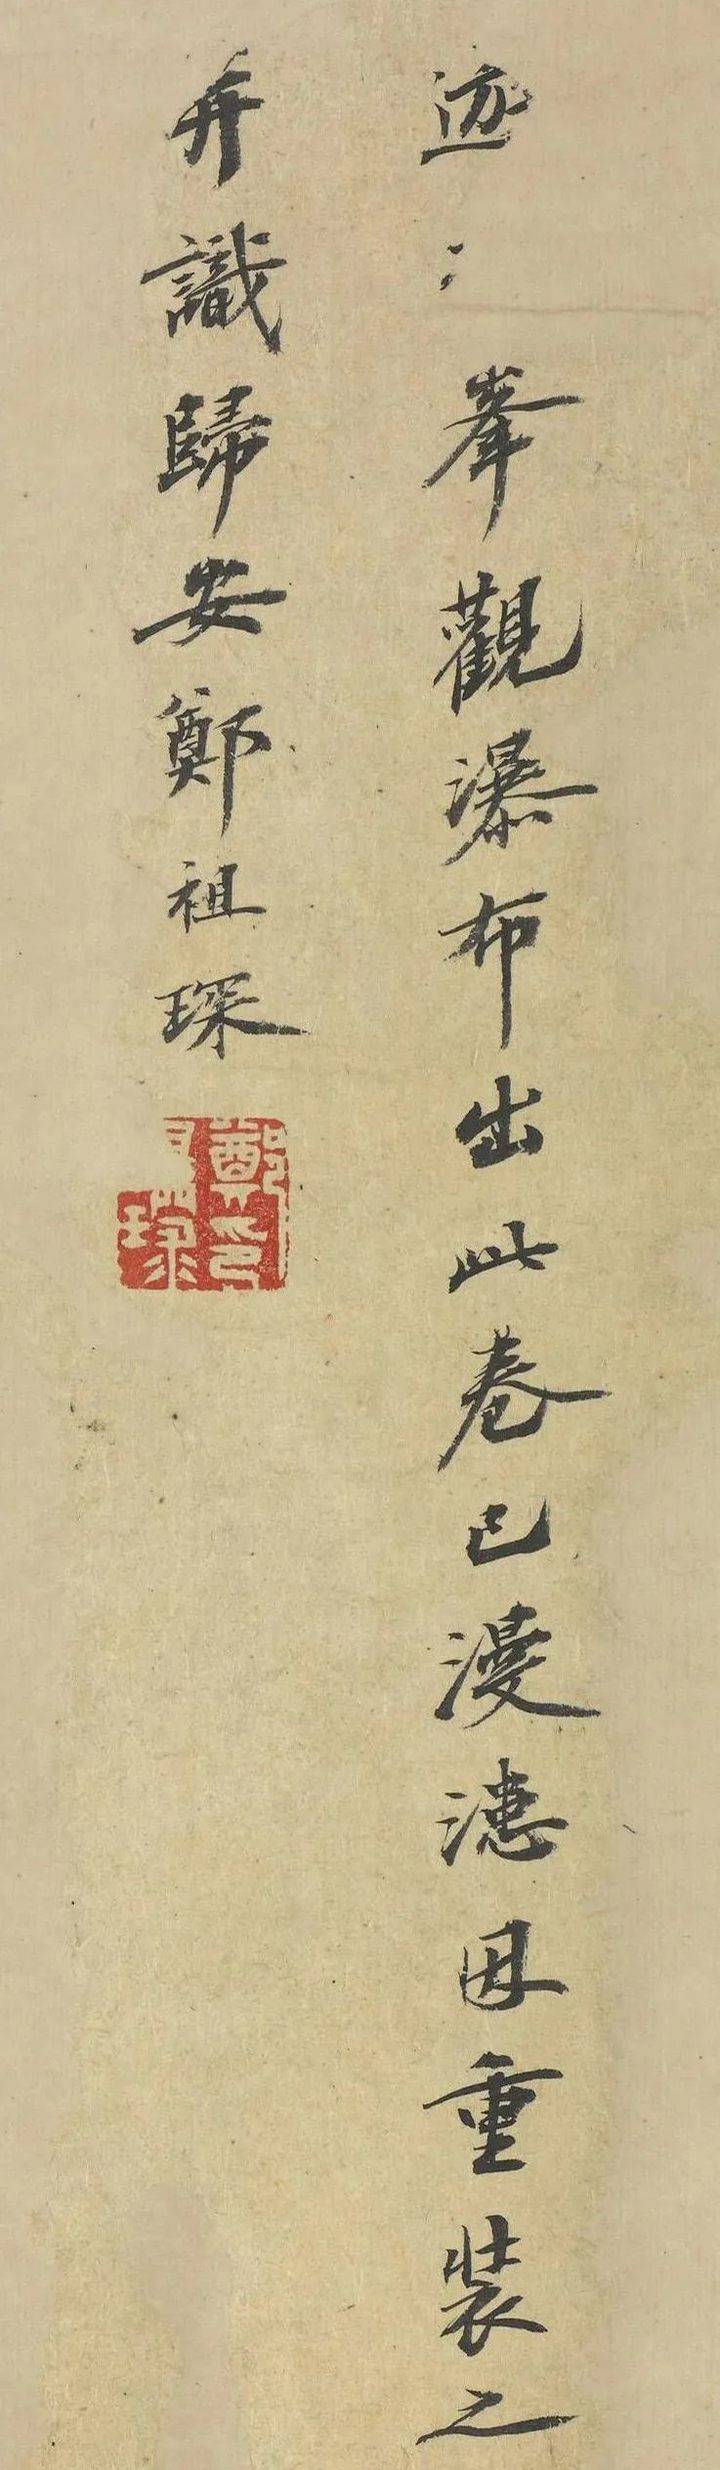 迹〻峯觀瀑布出此卷已漫漶因重裝之
并識歸安鄭祖琛
鄭祖琛印